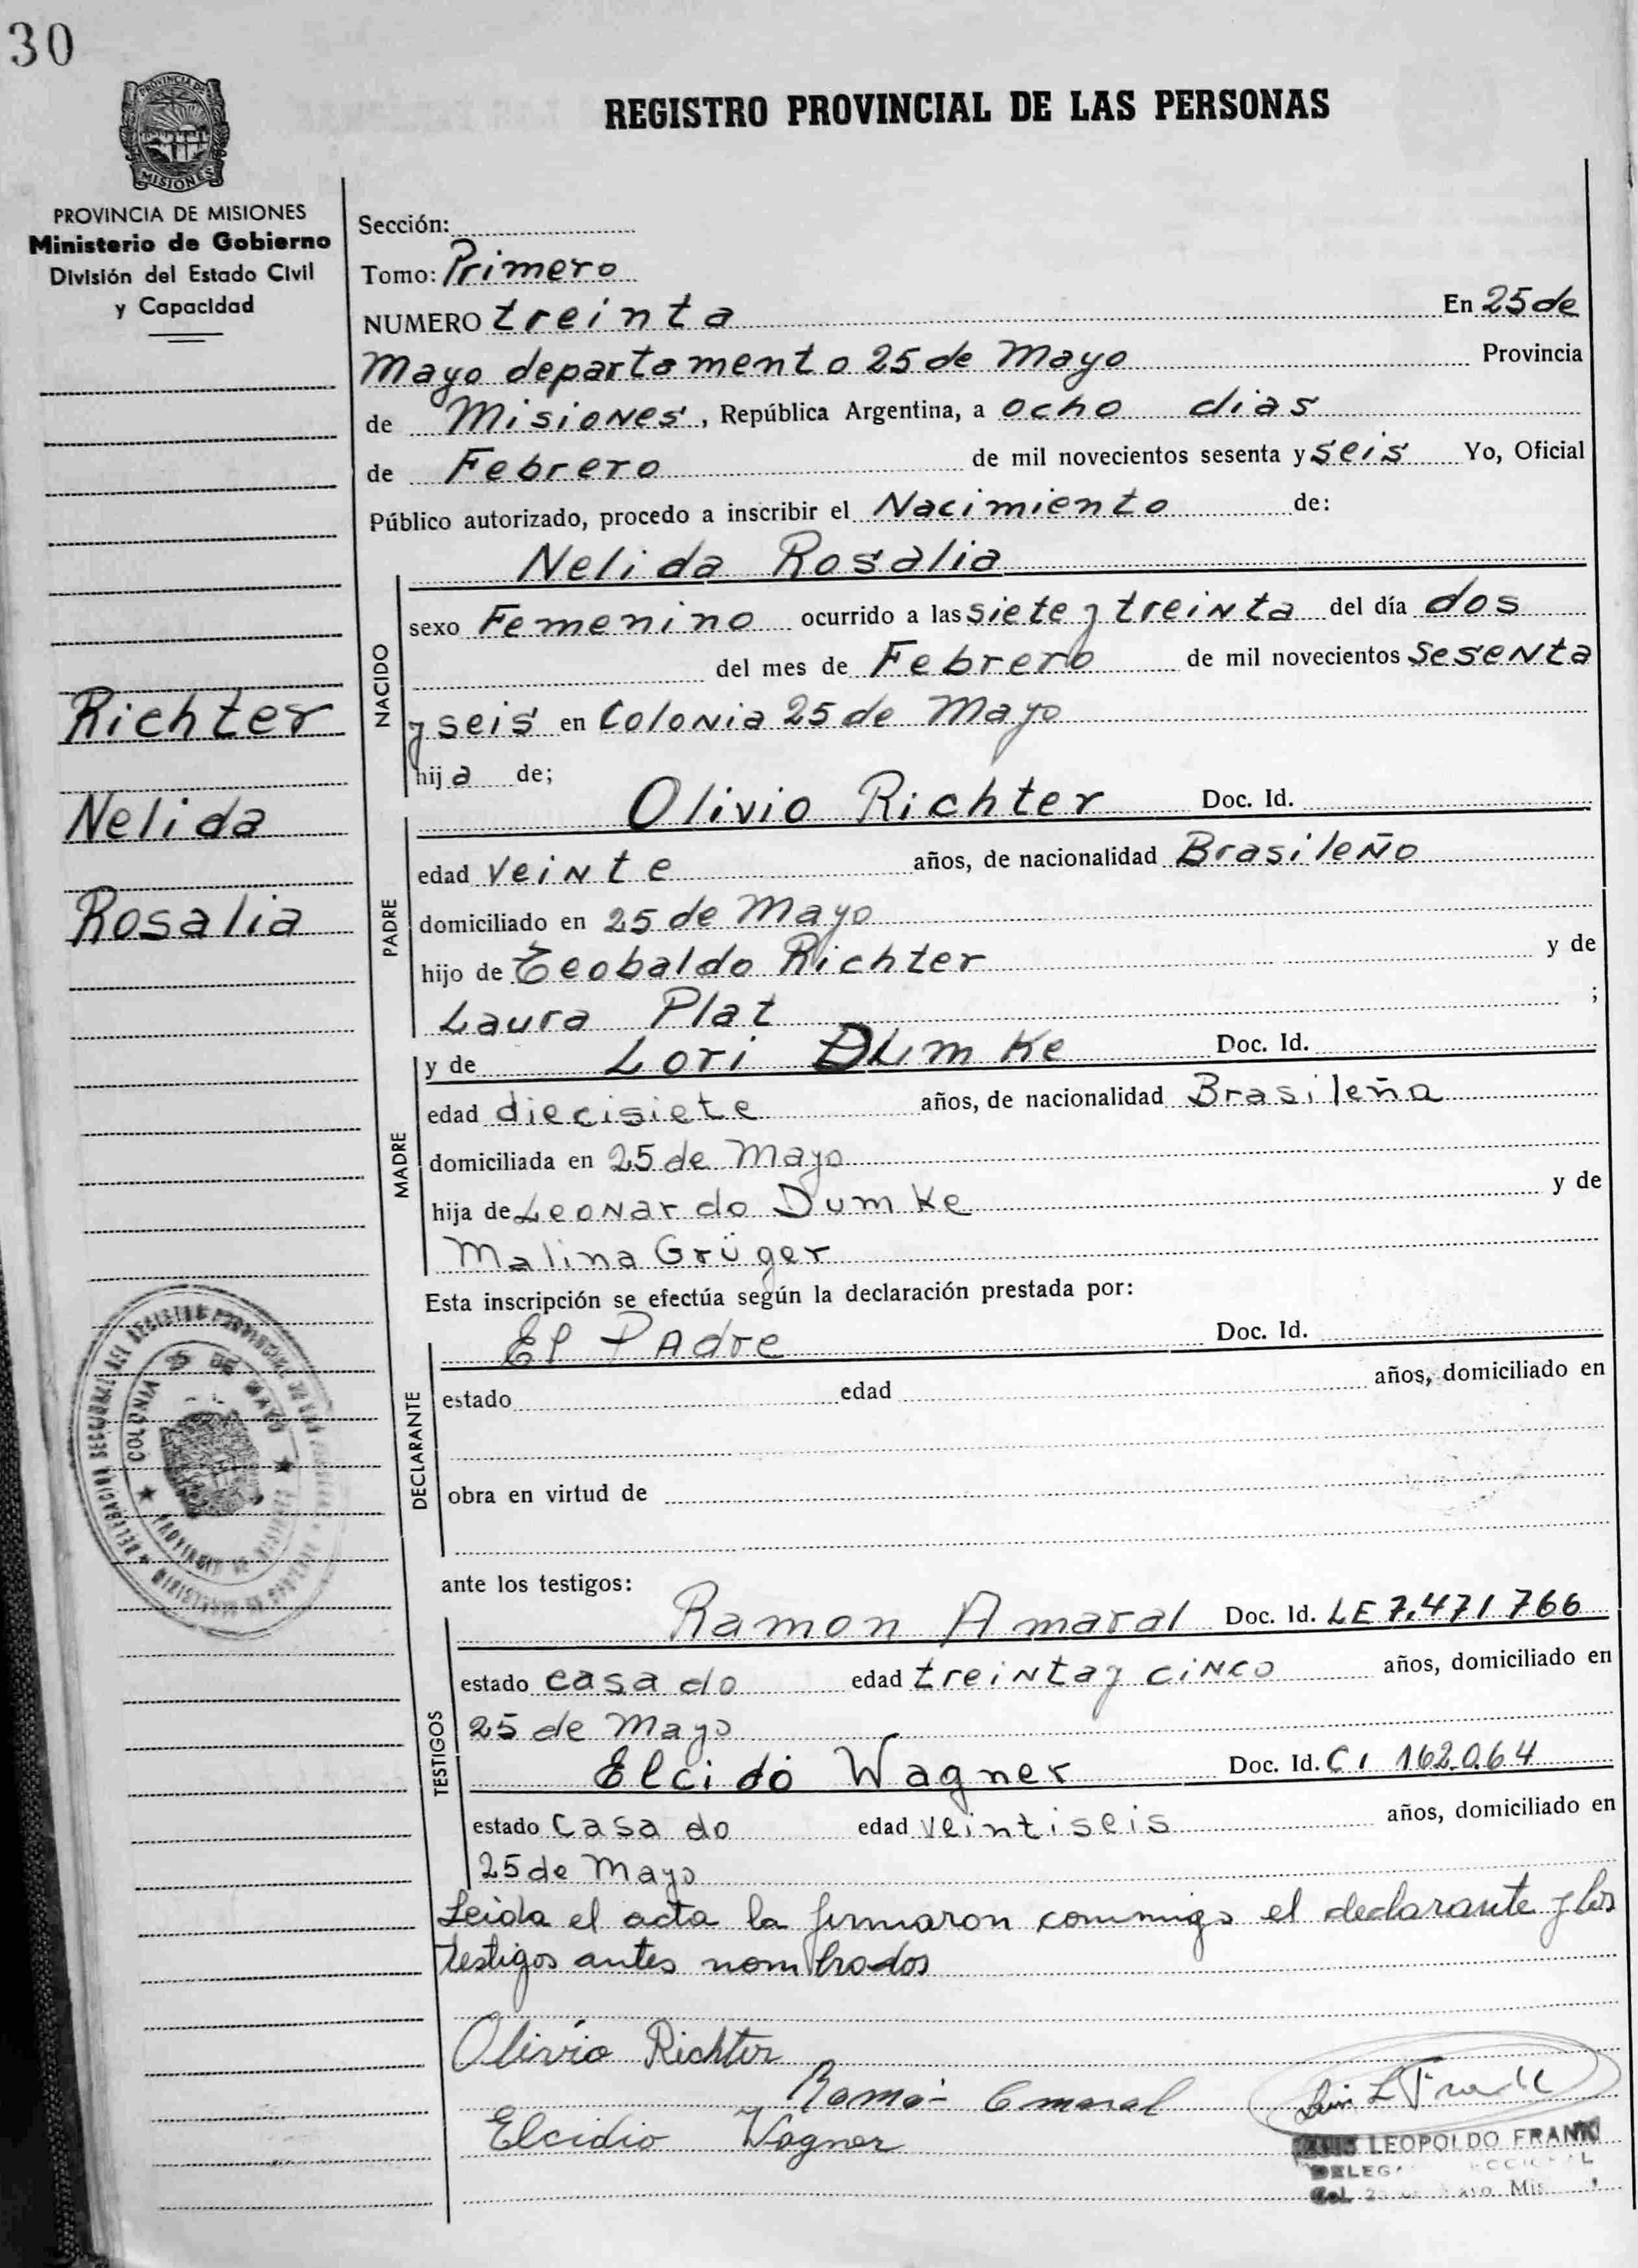 30
PROVINCIA DE
MISIONES
REGISTRO PROVINCIAL DE LAS PERSONAS
PROVINCIA DE MISIONES
Ministerio de Gobierno
División del Estado Civil
y Capacidad
Richter
Nelida
Rosalia
Sección:
Tomo: Primero
NUMERO treinta En 25 de
Mayo departamento 25 de Mayo Provincia
de Misiones, República Argentina, a ocho dias
de Febrero de mil novecientos sesenta y seis Yo, Oficial
Público autorizado, procedo a inscribir el Nacimiento de:
NACIDO
Nelida Rosalia
sexo Femenino ocurrido a las siete y treinta del día dos
del mes de Febrero de mil novecientos sesenta
y seis en Colonia 25 de Mayo
hija de;
PADRE
Olivio Richter Doc. Id.
edad veinte años, de nacionalidad Brasileño
domiciliado en 25 de Mayo
hijo de Teobaldo Richter y de
Laura Plat ;
MADRE
y de Lori Dumke Doc. Id.
edad diecisiete años, de nacionalidad Brasileña
domiciliada en 25 de Mayo
hija de Leonardo Dumke y de
Malina Grüger
Esta inscripción se efectúa según la declaración prestada por:
DECLARANTE
El Padre Doc. Id.
estado edad años, domiciliado en
obra en virtud de
ante los testigos:
TESTIGOS
Ramon Amaral Doc. Id. LE 7.471766
estado casado edad treinta y cinco años, domiciliado en
25 de Mayo
Elcido Wagner Doc. Id. CI 162.064
estado Casado edad veintiseis años, domiciliado en
25 de Mayo
Leida el acta la firmaron conmigo el declarante y los
testigos antes nombrados
Olivio Richter
Ramón Amaral
Elcidio Wagner
LUIS LEOPOLDO FRANK
COLONIA 25 DE MAYO